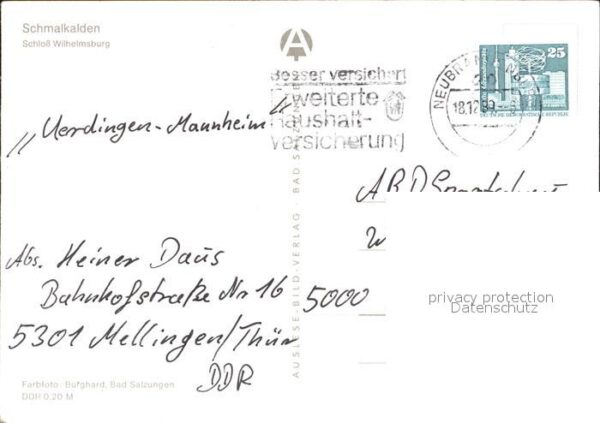 Schmalkalden
Schloß Wilhelmsburg
Besser versichert
Erweiterte
Haushalt-
versicherung
NEUBRANDENBURG
18.12.89
25
DEUTSCHE DEMOKRATISCHE REPUBLIK
„Uerdingen-Mannheim"
ARD
Abs. Heiner Daus
Bahnhofstraße Nr 16
5301 Mellingen/Thür
DDR
5000
AUSLESE-BILD-VERLAG · BAD SALZUNGEN
privacy protection
Datenschutz
Farbfoto: Burghard, Bad Salzungen
DDR 0,20 M